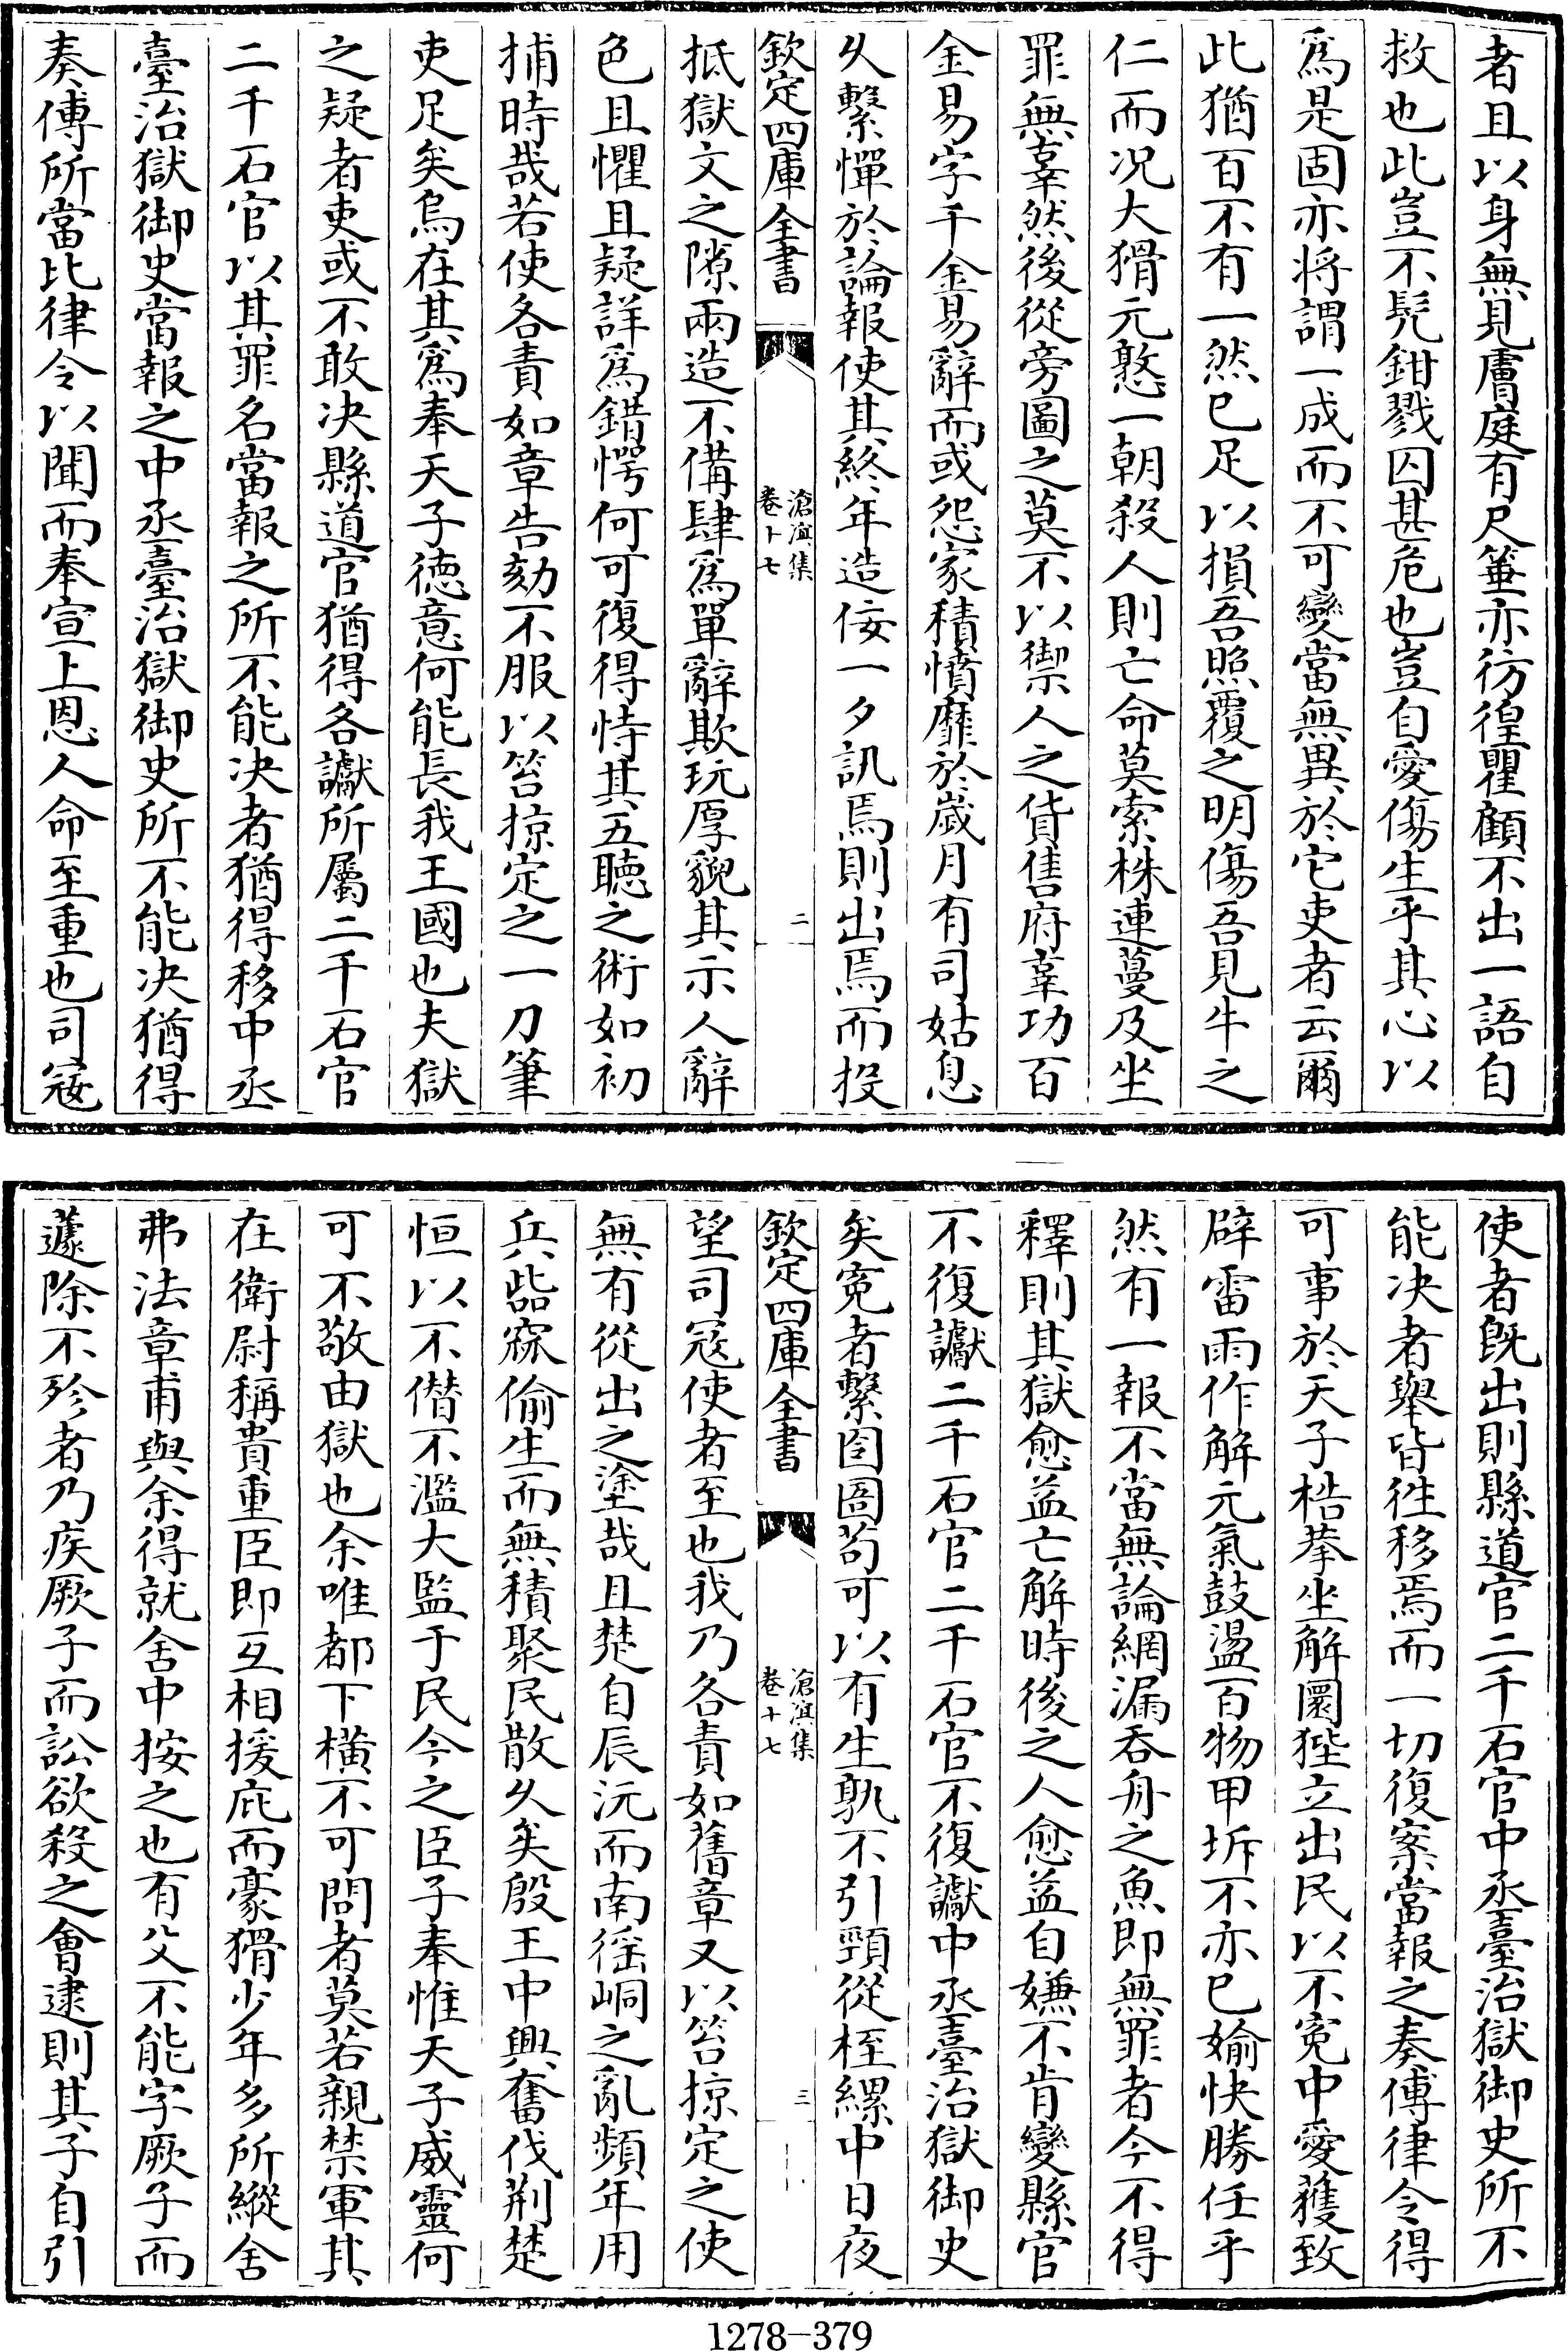 者且以身無見膚庭有尺箠亦彷徨瞿顧不出一語自
救也此豈不髠鉗戮囚甚危也豈自愛傷生乎其心以
為是固亦将謂一成而不可變當無異於它吏者云爾
此猶百不有一然已足以損吾照覆之明傷吾見牛之
仁而况大猾元憝一朝殺人則亡命莫索株連蔓及坐
罪無辜然後從旁圖之莫不以禦人之貨售府辜功百
金易字千金易辭而或怨家積憤靡於嵗月有司姑息
乆繫憚於論報使其終年造佞一夕訊焉則出焉而投
欽定四庫全書
滄溟集
卷十七
二
抵獄文之隙兩造不備肆為單辭欺玩厚貌其示人辭
色且懼且疑詳為錯愕何可復得恃其五聴之術如初
捕時哉若使各責如章告劾不服以笞掠定之一刀筆
吏足矣烏在其為奉天子徳意何能長我王國也夫獄
之疑者吏或不敢决縣道官猶得各讞所屬二千石官
二千石官以其罪名當報之所不能决者猶得移中丞
臺治獄御史當報之中丞臺治獄御史所不能决猶得
奏傅所當比律令以聞而奉宣上恩人命至重也司㓂
使者旣出則縣道官二千石官中丞臺治獄御史所不
能决者舉皆徃移焉而一切復案當報之奏傅律令得
可事於天子梏拲坐解圜狴立出民以不寃中愛蒦致
辟雷雨作解元氣鼓盪百物甲坼不亦已媮快勝任乎
然有一報不當無論網漏吞舟之魚即無罪者今不得
釋則其獄愈益亡解時後之人愈益自嫌不肯變縣官
不復讞二千石官二千石官不復讞中丞臺治獄御史
矣寃者繫囹圄茍可以有生孰不引頸從桎縲中日夜
欽定四庫全書
滄溟集
卷十七
三
望司㓂使者至也我乃各責如舊章又以笞掠定之使
無有從出之塗哉且楚自辰沅而南徭峒之亂頻年用
兵呰窳偷生而無積聚民散乆矣殷王中興奮伐荆楚
恒以不僭不濫大監于民今之臣子奉惟天子威靈何
可不敬由獄也余唯都下横不可問者莫若親禁軍其
在衛尉稱貴重臣即互相援庇而豪猾少年多所縱舍
弗法章甫與余得就舍中按之也有父不能字厥子而
蘧除不殄者乃疾厥子而訟欲殺之會逮則其子自引
1278-379